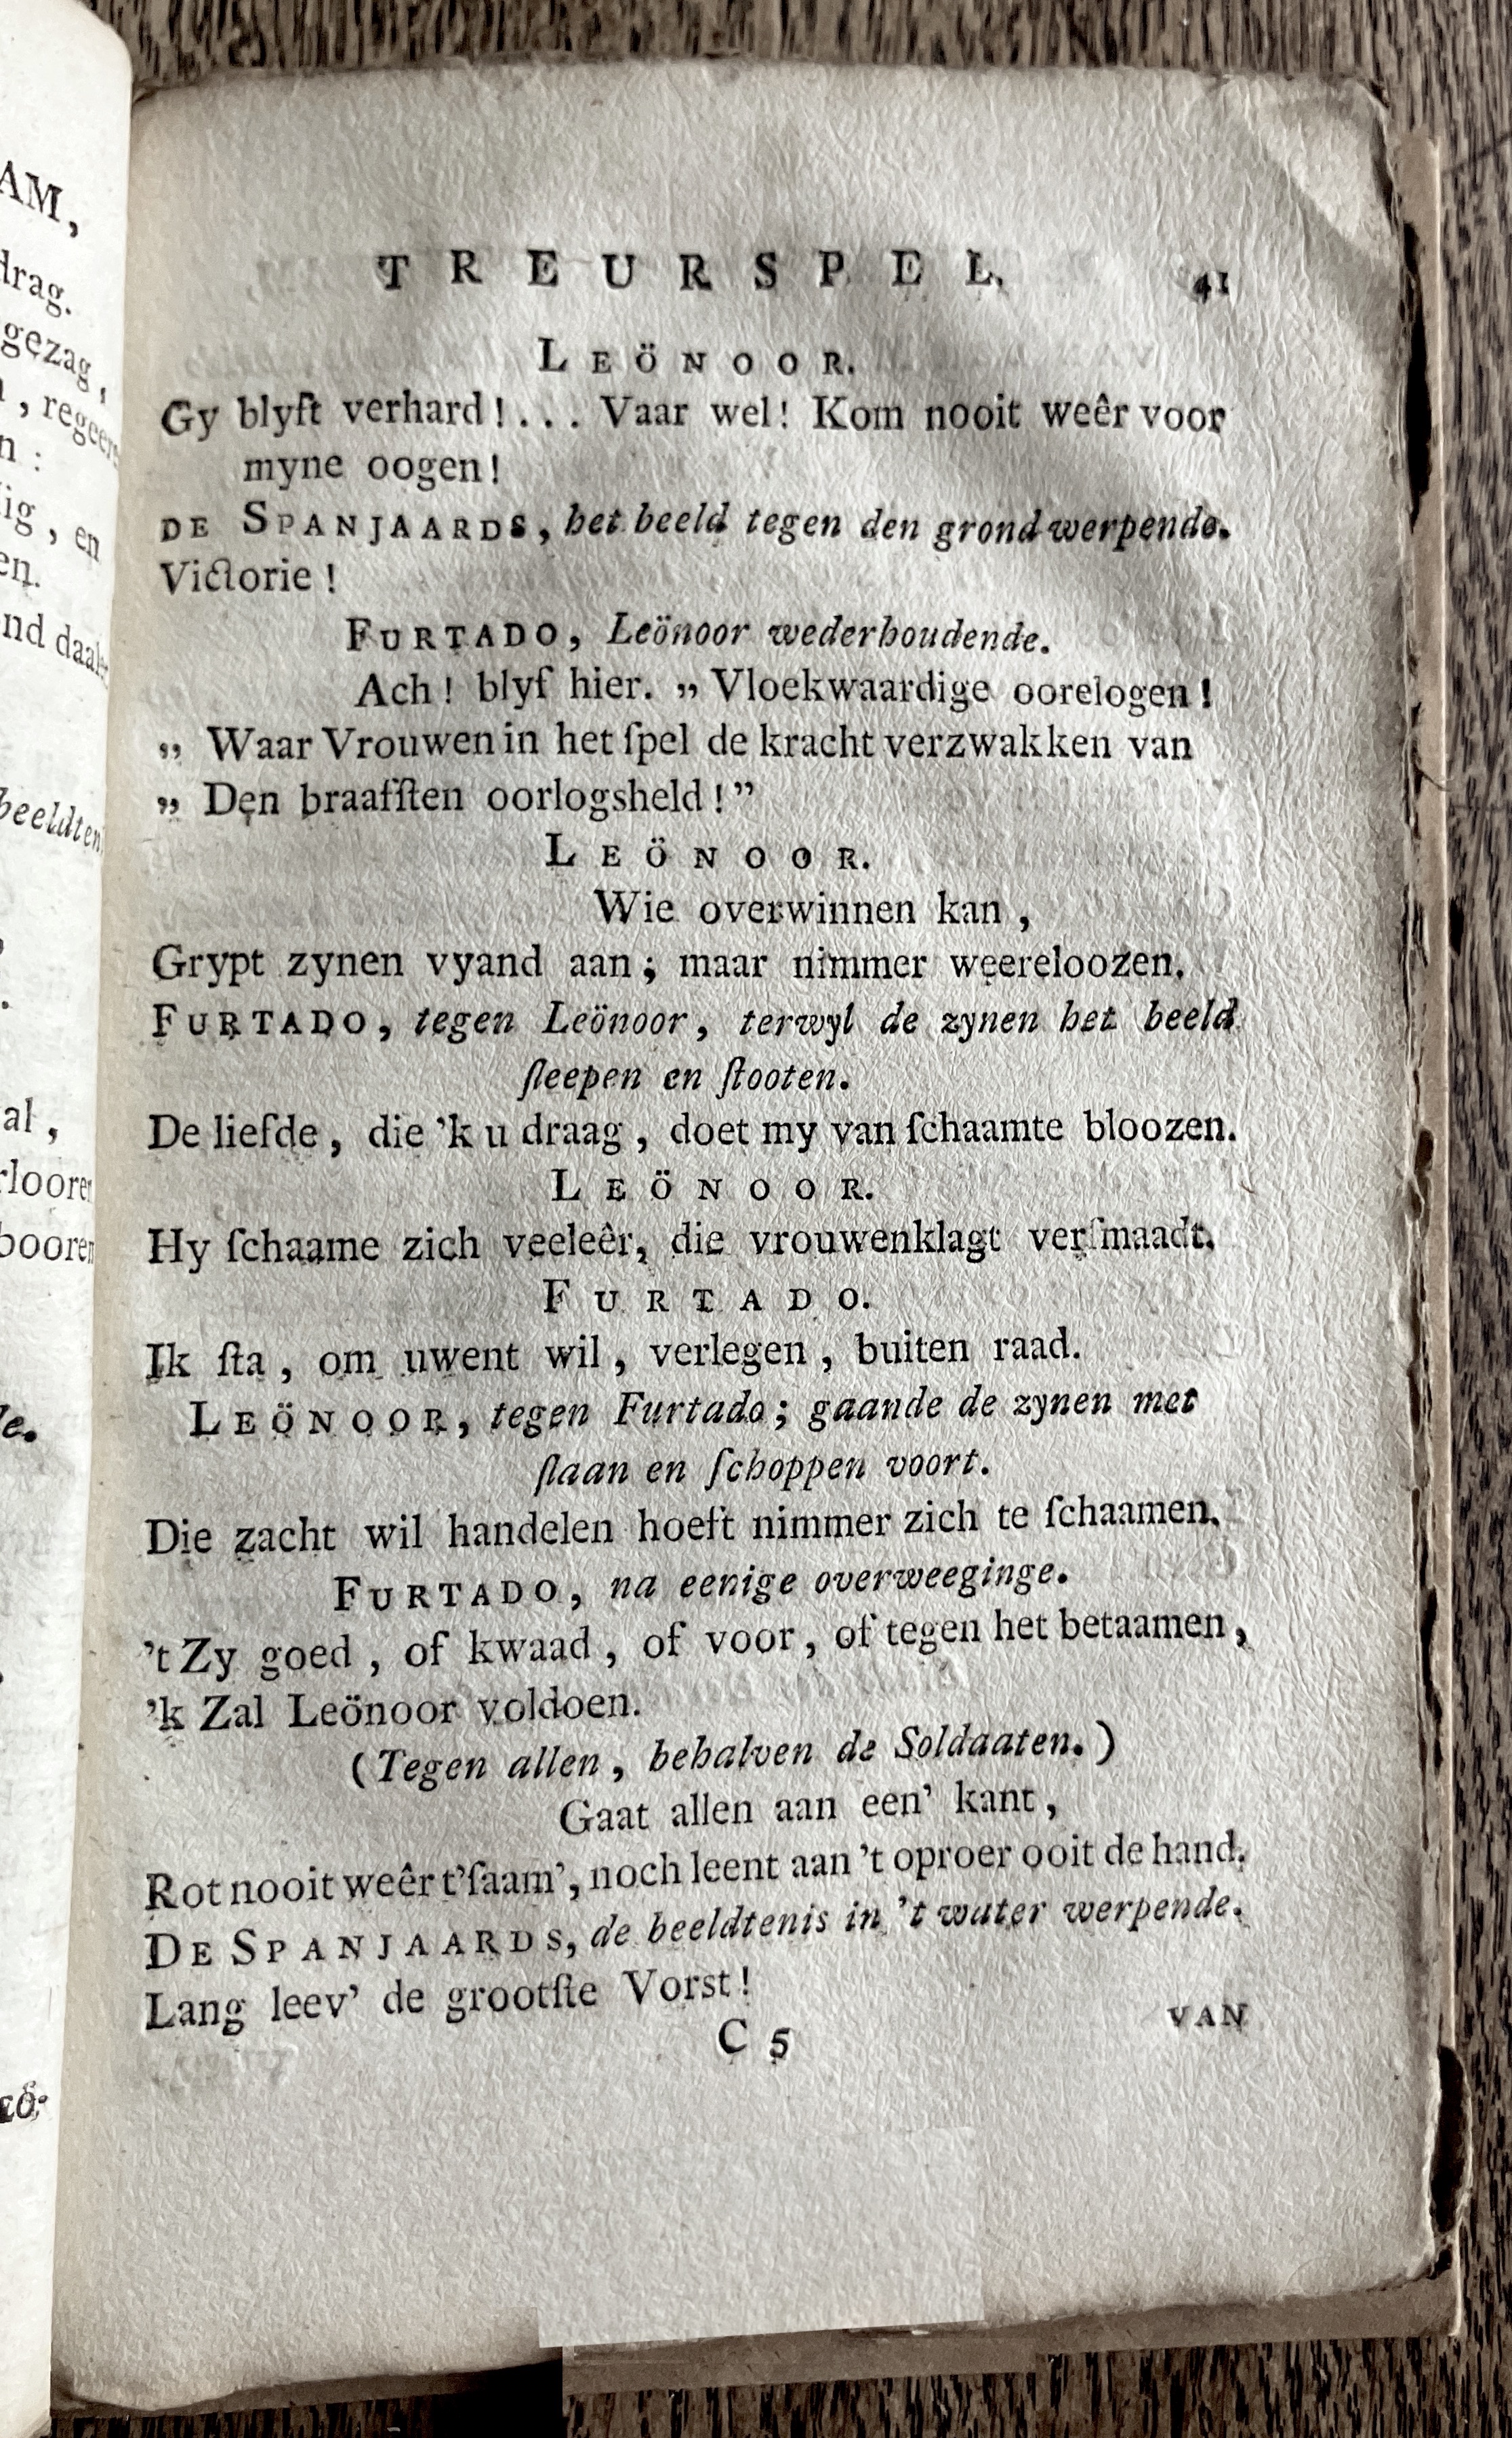 AM,
drag.
gezag,
, regeer
n :
ig, en
en.
nd daal
beeldten
al,
rloore
booren
le.
TREURSPEL. 41
LEÖNOOR.
Gy blyft verhard!... Vaar wel! Kom nooit weêr voor
myne oogen!
DE SPANJAARDS, het beeld tegen den grond werpende.
Victorie!
FURTADO, Leönoor wederhoudende.
Ach! blyf hier. „ Vloekwaardige oorelogen!
„ Waar Vrouwen in het ſpel de kracht verzwakken van
„ Den braafſten oorlogsheld!”
LEÖNOOR.
Wie overwinnen kan,
Grypt zynen vyand aan; maar nimmer weereloozen.
FURTADO, tegen Leönoor, terwyl de zynen het beeld
ſleepen en ſtooten.
De liefde, die 'k u draag, doet my van ſchaamte bloozen.
LEÖNOOR.
Hy ſchaame zich veeleêr, die vrouwenklagt verſmaadt.
FURTADO.
Ik ſta, om uwent wil, verlegen, buiten raad.
LEÖNOOR, tegen Furtado; gaande de zynen met
ſlaan en ſchoppen voort.
Die zacht wil handelen hoeft nimmer zich te ſchaamen.
FURTADO, na eenige overweeginge.
't Zy goed, of kwaad, of voor, of tegen het betaamen,
'k Zal Leönoor voldoen.
(Tegen allen, behalven de Soldaaten.)
Gaat allen aan een' kant,
Rot nooit weêr t'ſaam', noch leent aan 't oproer ooit de hand.
DE SPANJAARDS, de beeldtenis in 't water werpende.
Lang leev' de grootſte Vorst!
C 5 VAN